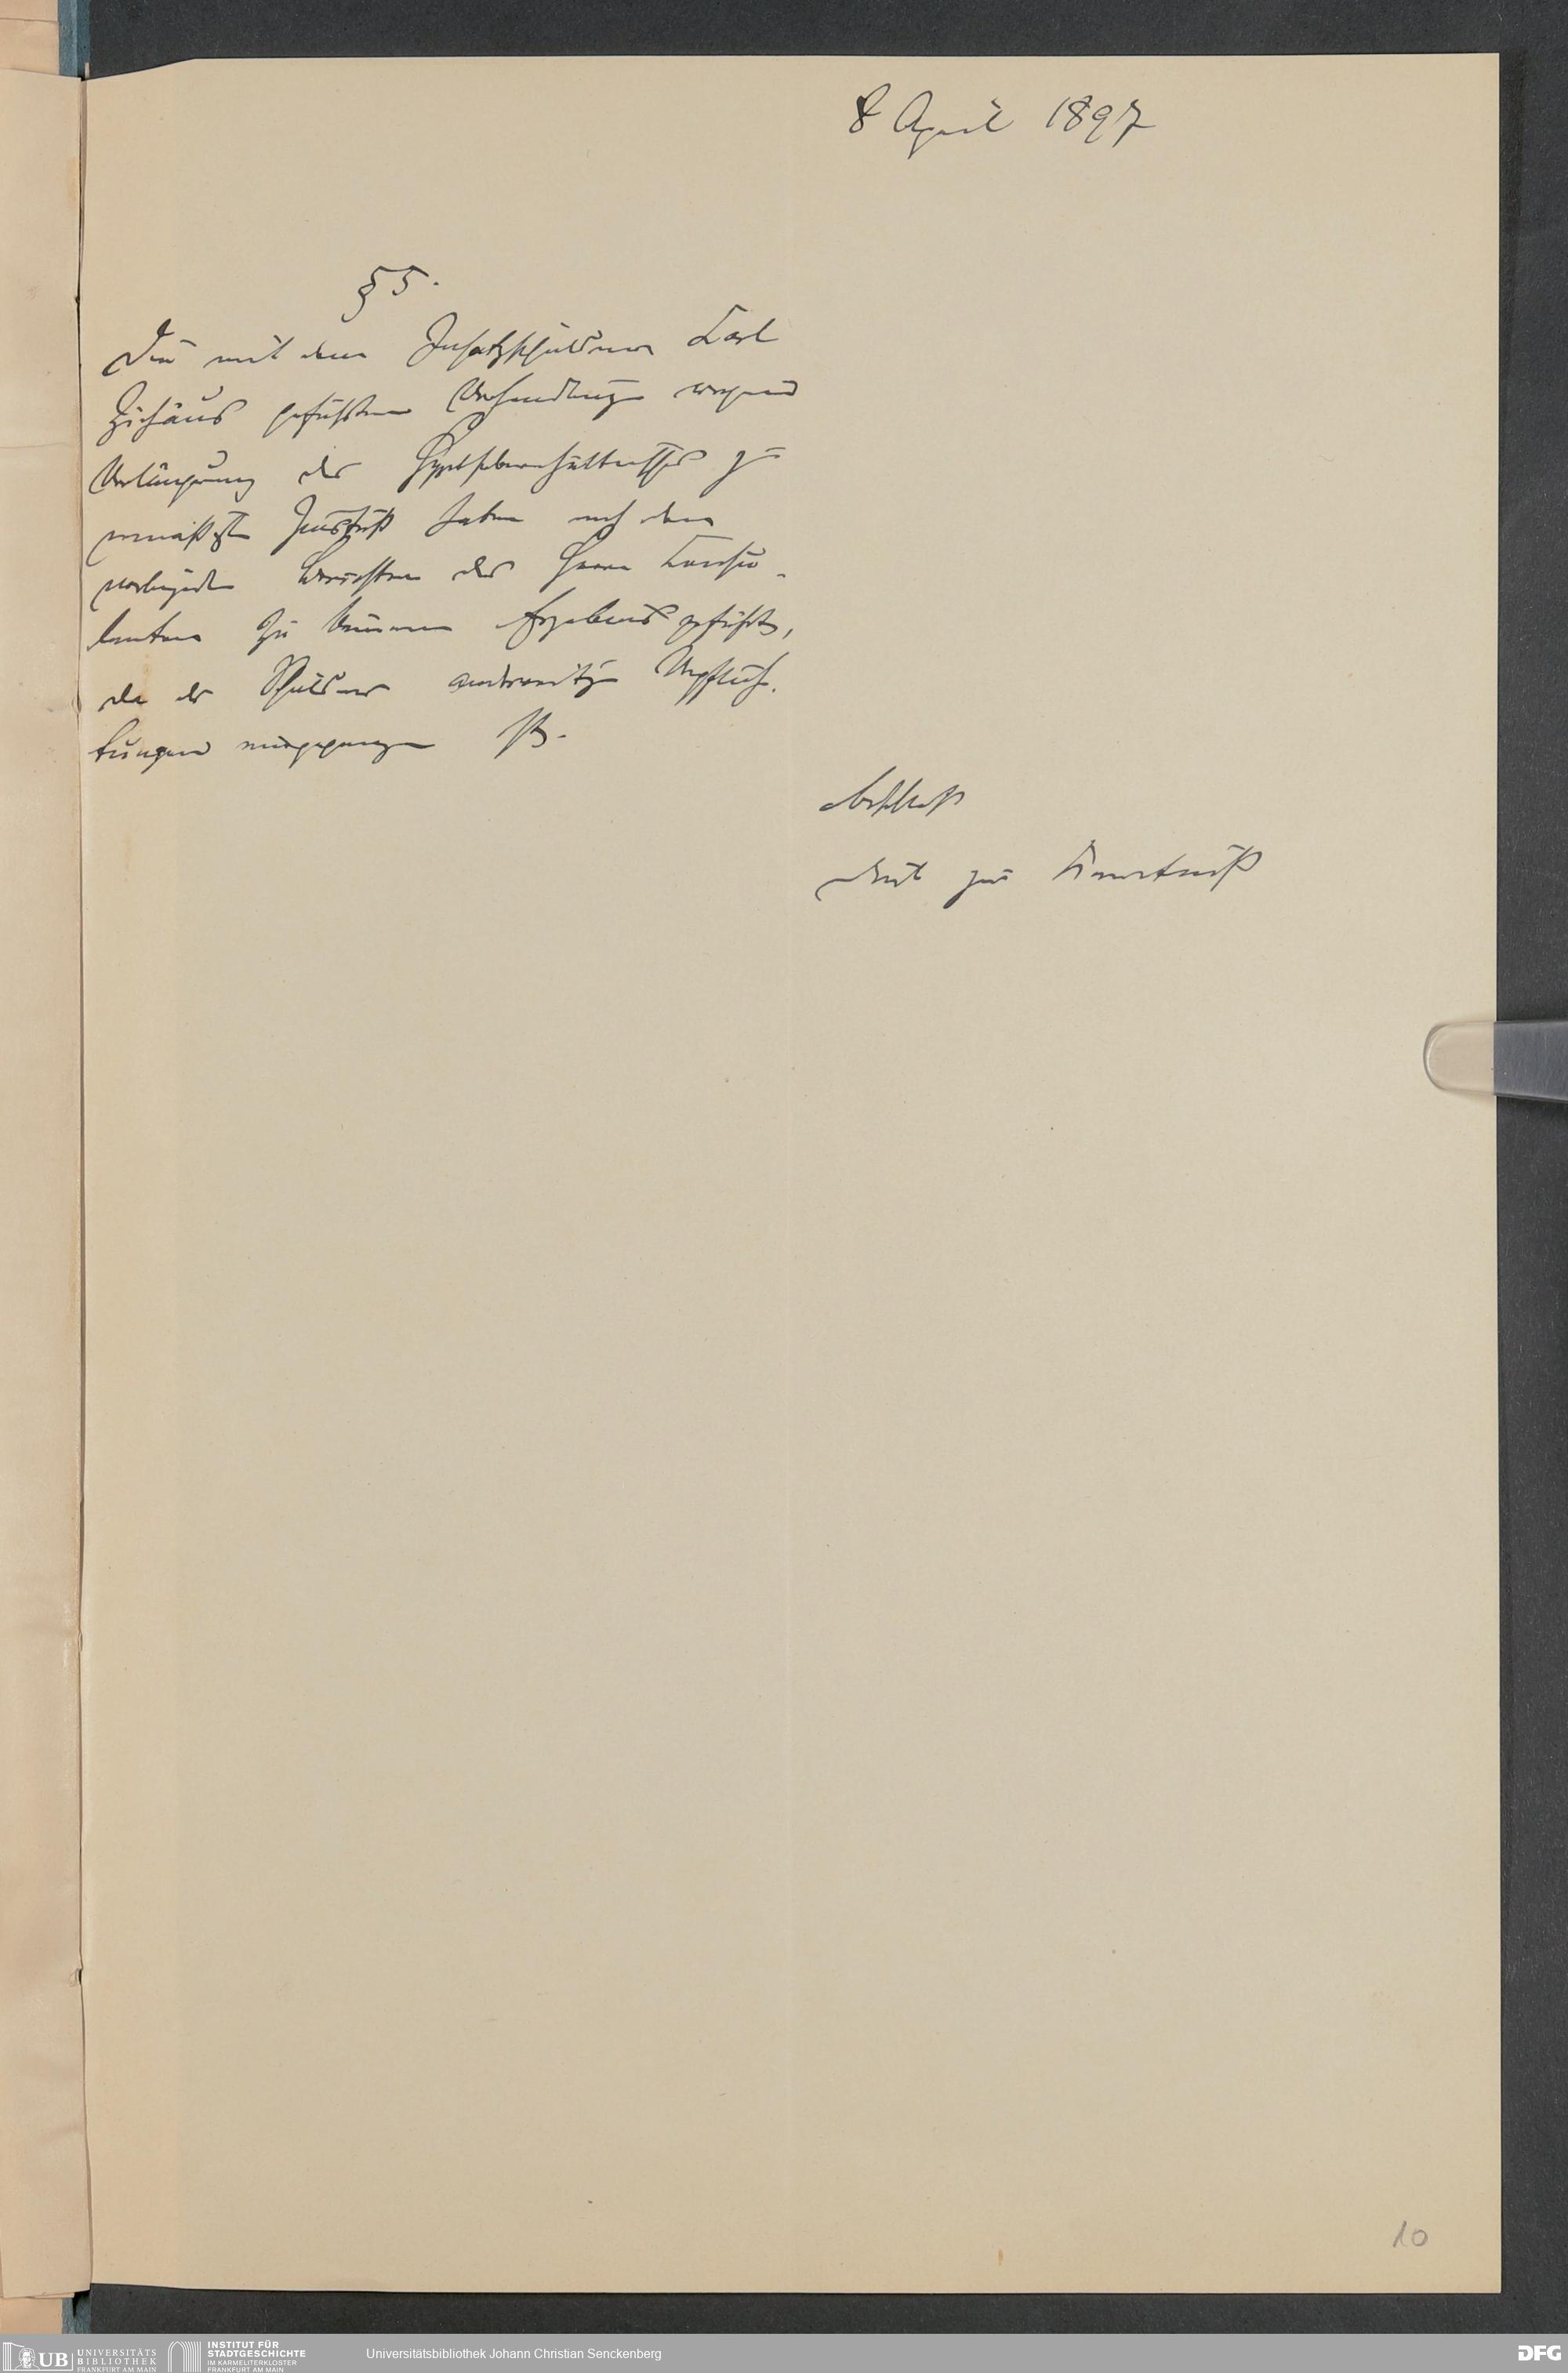 8 April 1897
§ 5.
Die mit dem Insatzschuldner Carl
geführten Verhandlungen wegen
Verlängerung des Hypothekenverhältnisses zu
ermäßigtem Zinsfuß haben nach dem
vorliegenden Berichten des Herrn Consu-
lenten zu keinem Ergebnis geführt,
da der Schuldner anderweitige Verpflich-
tungen eingegangen ist.
Beschluß
dient zur Kenntniß
10
UB UNIVERSITÄTS
BIBLIOTHEK
FRANKFURT AM MAIN
INSTITUT FÜR
STADTGESCHICHTE
IM KARMELITERKLOSTER
FRANKFURT AM MAIN
Universitätsbibliothek Johann Christian Senckenberg
DFG